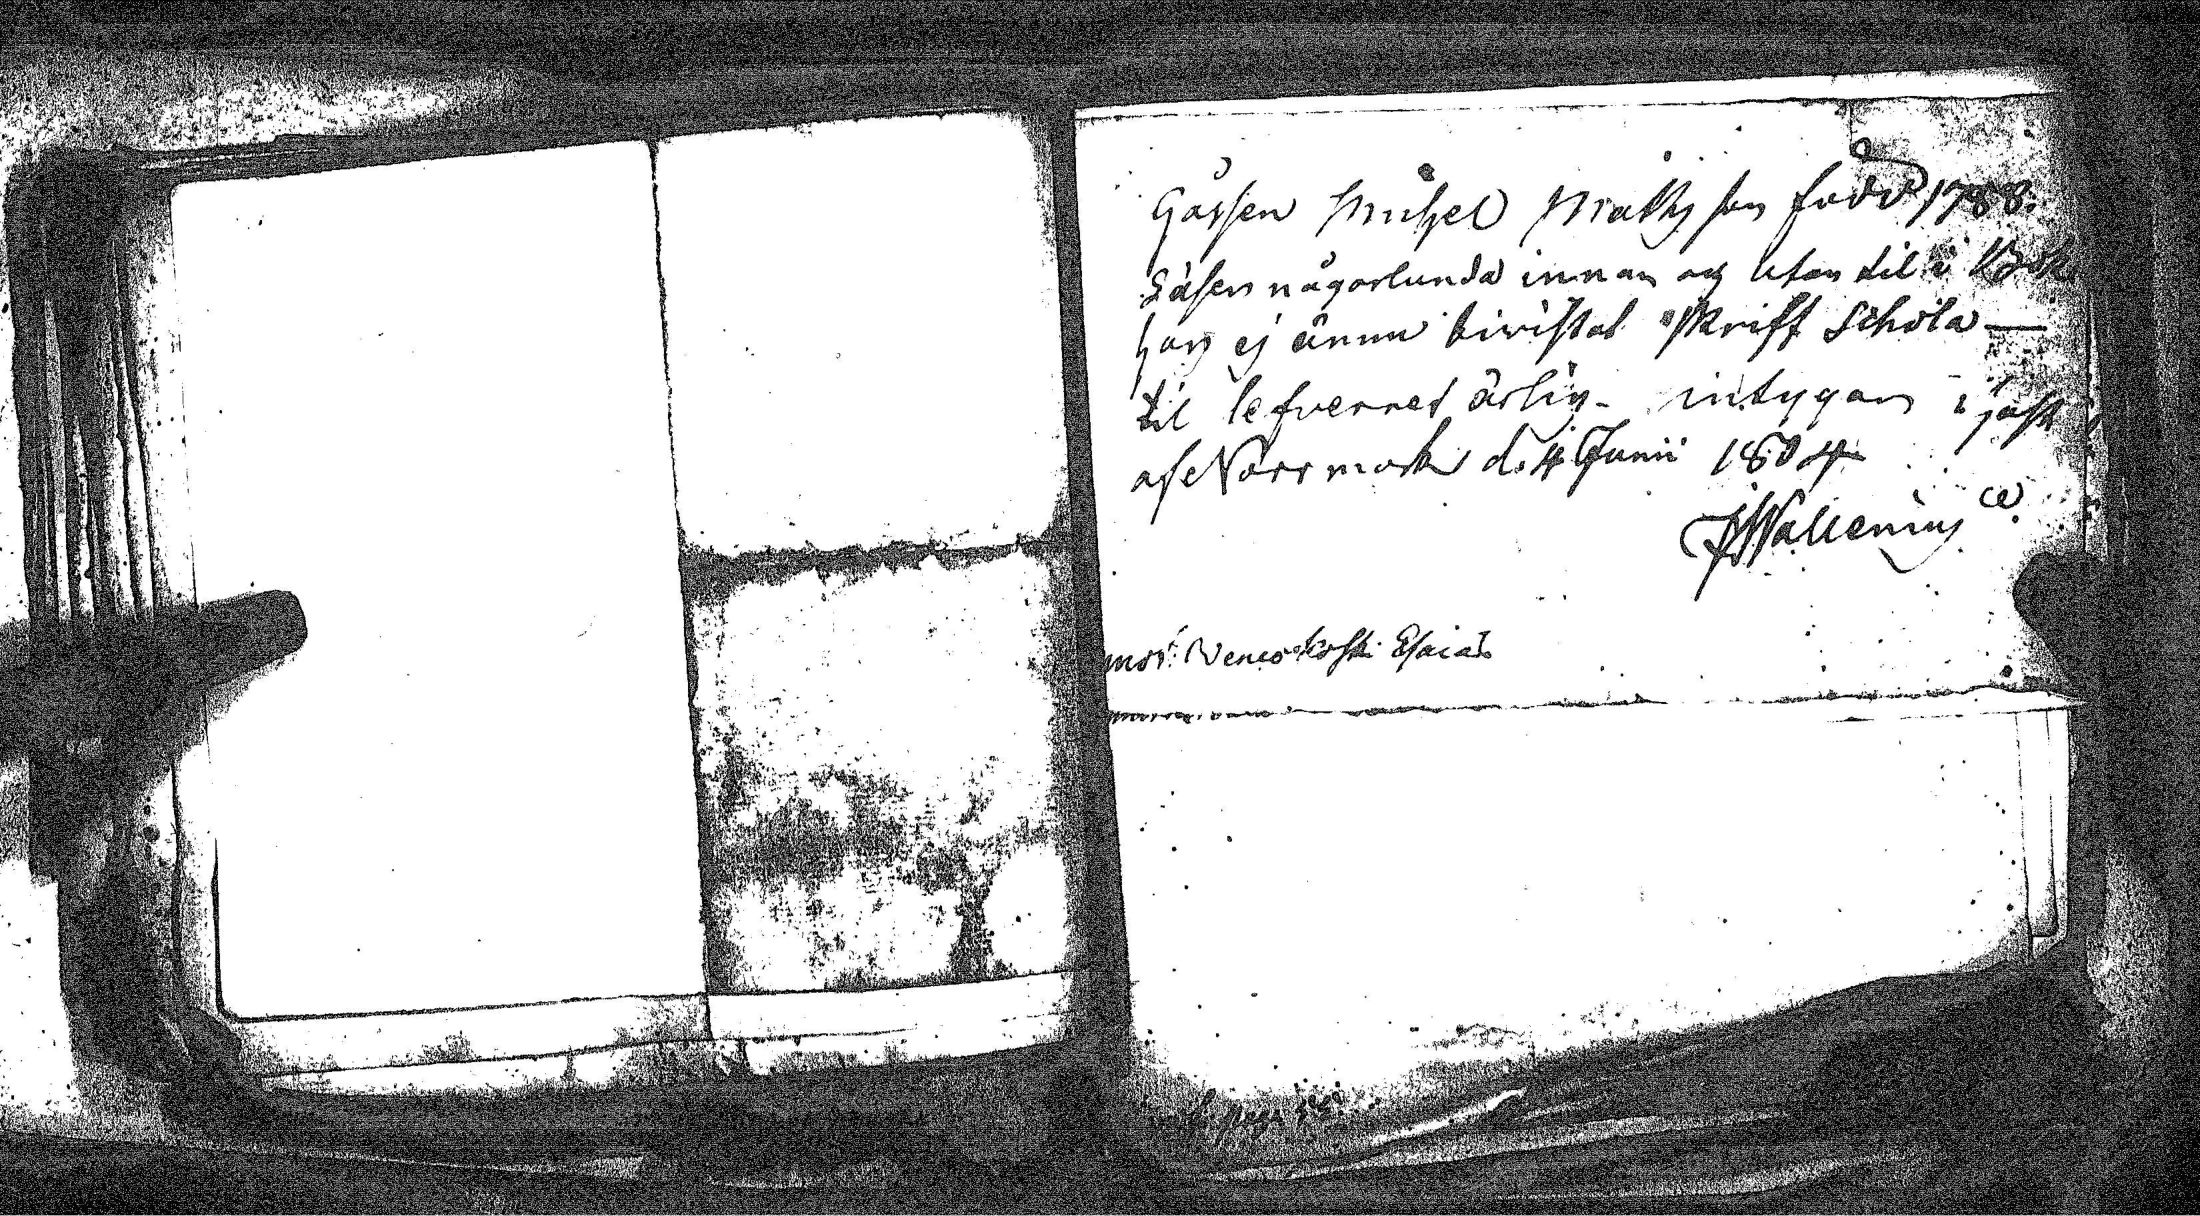 Gossen Michel Mattsson född 1788.
Läsen någorlunda innan och utan til i Bok
har ej ännu biwistat Skrift Schola —
til lefvernet ärlig. intygar i hast
af Norrmark d. 4 Junii 1804
J Wallenius